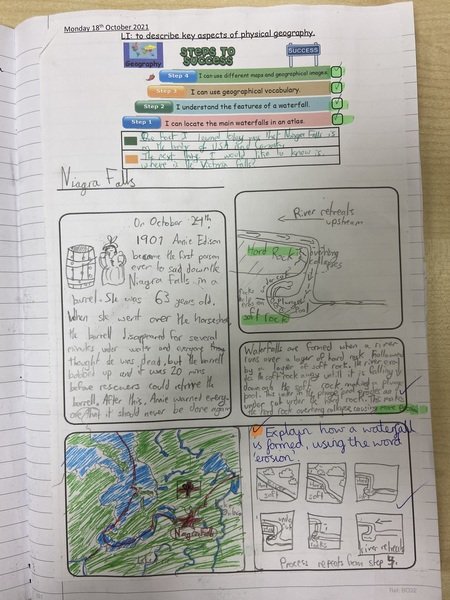 Monday 18th October 2021
LI: to describe key aspects of physical geography.
Geography
STEPS TO
SUCCESS
SUCCESS
Step 4
I can use different maps and geographical images.
Step 3
I can use geographical vocabulary.
Step 2
I understand the features of a waterfall.
Step 1
I can locate the main waterfalls in an atlas.
One fact I learnt today was that Niagra Falls is
on the border of USA and Canada.
The next thing I would like to know is,
where is the Victoria Falls?
Niagra Falls
On October 24th,
1901 Annie Edison
became the first person
ever to sail down the
Niagra Falls in a
barrell. She was 63 years old.
When she went over the horseshoe,
the barrell disappeared for several
minutes under water and everyone
thought she was dead, but the barrell
bobbed up and it was 20 mins
before rescuers could retrive the
barrell. After this, Annie warned every-
one that it should never be done again
River retreats
upstream
Hard Rock
overhang
collapses
Plunge
Pool
Soft Rock
Waterfalls are formed when a river
runs over a layer of hard rock followed
by a layer of soft rock. The river
the soft rock away until it is falling
down the soft rock making a plunge
pool. The water in the plunge pool
under cut under the hard rock. This makes
the hard rock overhang collapse, causing
Niagra Falls
Explain how a waterfall
is formed, using the word
'erosion'.
soft
soft
River retreats
Process repeats from step